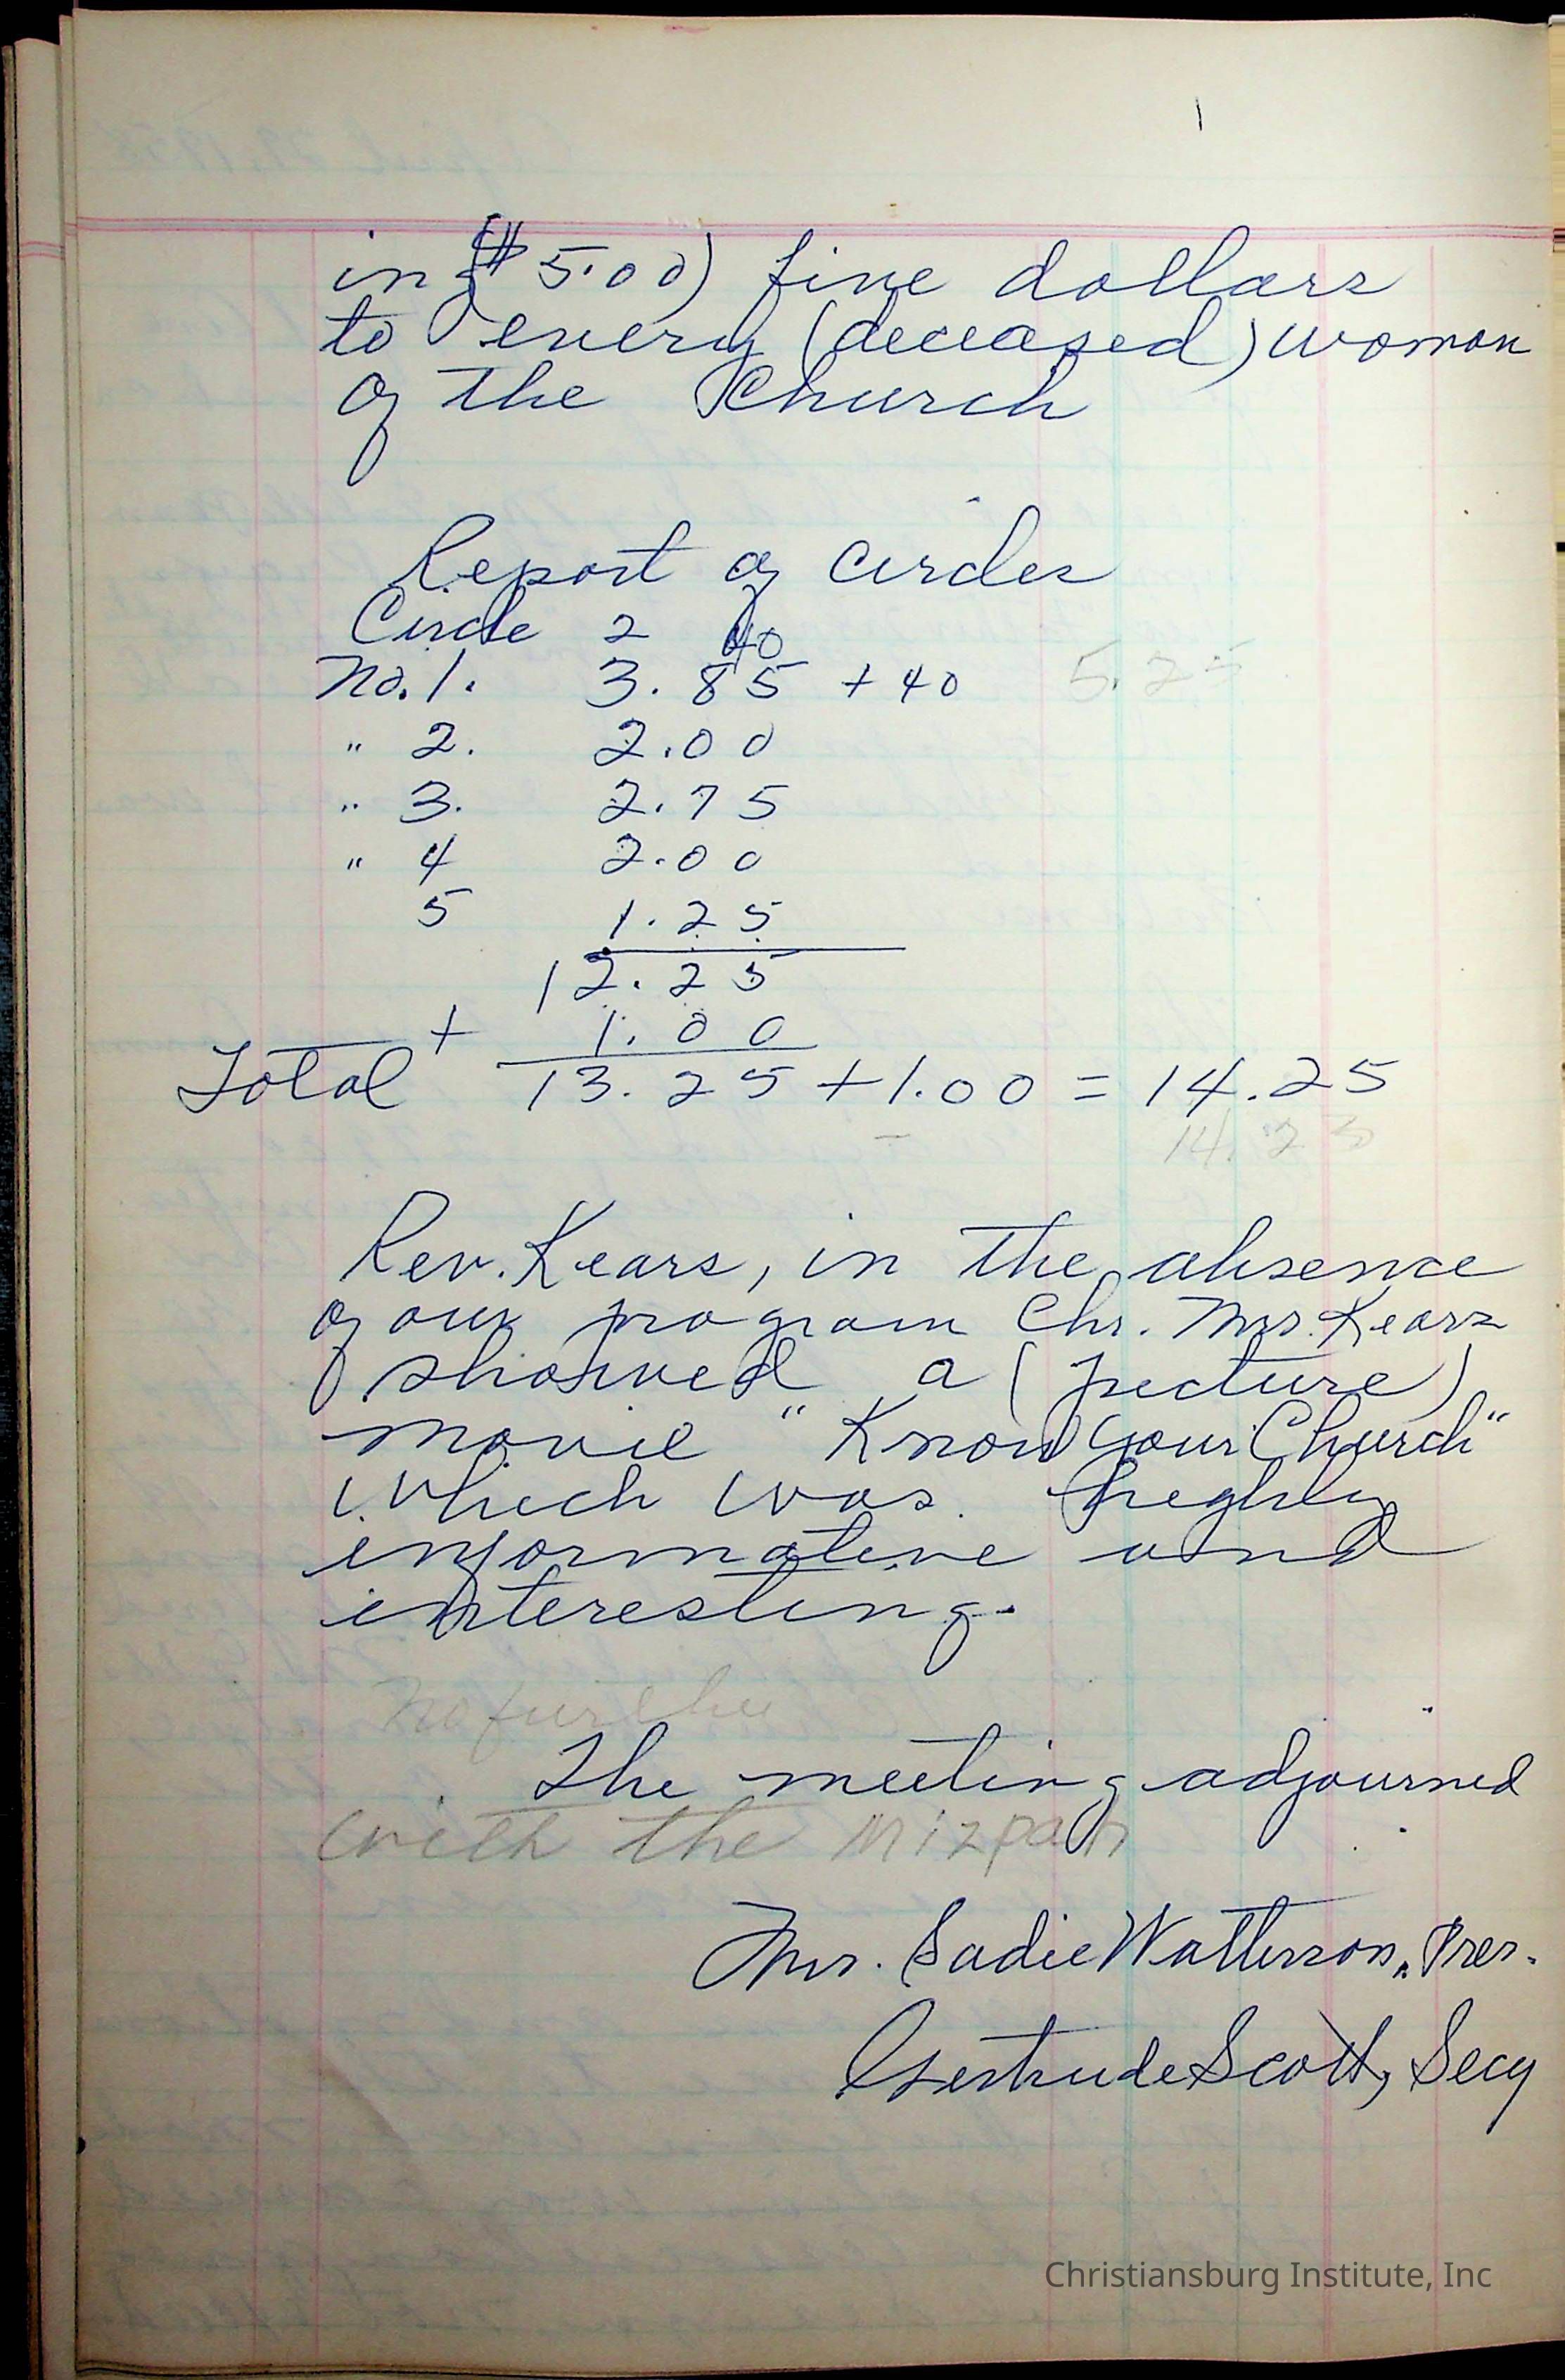 in ($5.00) five dollars
to every (deceased) woman
of the Church
Report of Circles
Circle 2 40
No. 1. 3.85 + 40 5.25
" 2. 2.00
" 3. 2.75
" 4 2.00
5 1.25
12.25
+ 1.00
Total 13.25 + 1.00 = 14.25
14.25
Rev. Kears, in the absence
of our program Chr. Mrs. Kears
showed a (picture)
movie "Know your Church"
which was highly
informative and
interesting.
No further
The meeting adjourned
with the Mizpah
Mrs. Sadie Watterson, Pres.
Gertrude Scott, Secy
Christiansburg Institute, Inc